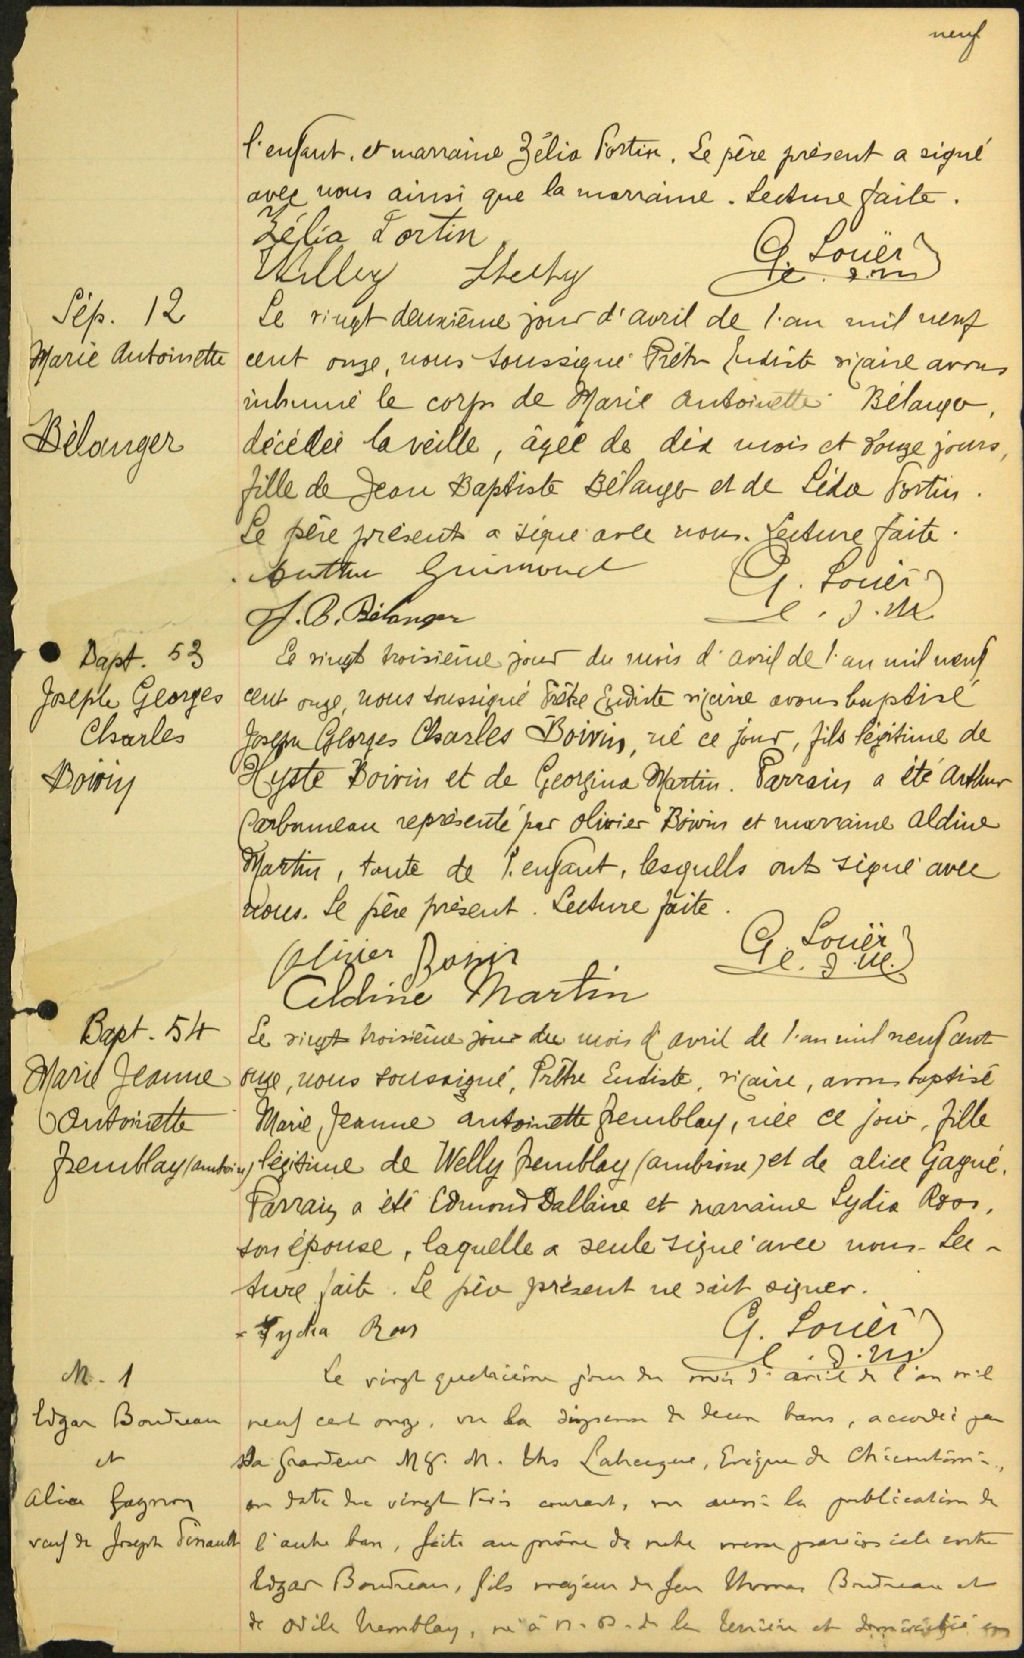 neuf
l'enfant, et marraine Zélia Fortin. Le père présent a signé
avec nous ainsi que la marraine. Lecture faite.
Zélia Fortin
G. Louër
c. j. m
Sép. 12
Marie Antoinette
Bélanger
Le vingt deuxième jour d'avril de l'an mil neuf
cent onze, nous soussigné Prêtre Eudiste vicaire avons
inhumé le corps de Marie Antoinette Bélanger,
décédée la veille, âgée de dix mois et douze jours,
fille de Jean Baptiste Bélanger et de Léda Fortin.
Le père présent a signé avec nous. Lecture faite.
Arthur Guimond
G. Louër
c. j. m.
J. B. Bélanger
Bapt. 53
Joseph Georges
Charles
Boivin
Le vingt troisième jour du mois d'avril de l'an mil neuf
cent onze, nous soussigné Prêtre Eudiste vicaire avons baptisé
Joseph Georges Charles Boivin, né ce jour, fils légitime de
Boivin et de Georgina Martin. Parrain a été Arthur
Carbonneau représenté par Olivier Boivin et marraine Aldine
Martin, tante de l'enfant, lesquells ont signé avec
nous. Le père présent. Lecture faite.
Olivier Boivin
G. Louër
c. j. m.
Aldine Martin
Bapt. 54
Marie Jeanne
Antoinette
Tremblay (ambroise)
Le vingt troisième jour du mois d'avril de l'an mil neuf cent
onze, nous soussigné, Prêtre Eudiste, vicaire, avons baptisé
Marie Jeanne Antoinette Tremblay, née ce jour, fille
légitime de Welly Tremblay (ambroise) et de Alice Gagné.
Parrain a été Edmond Dallaire et marraine Lydia Roos,
son épouse, laquelle a seule signé avec nous. Lec-
ture faite. Le père présent ne sait signer.
Lydia Roos
G. Louër
c. j. m.
M. 1
Edgar Boudreau
et
Alice Gagnon
veuf de Joseph
Le vingt quatrième jour du mois d'avril de l'an mil
neuf cent onze, vu la dispense de deux bans, accordée par
Sa Grandeur Mgr. M. Ths Labrecque, Evêque de Chicoutimi,
en date du vingt trois courant, vu aussi la publication de
l'autre ban, faite au prône de notre messe paroissiale entre
Edgar Boudreau, fils majeur de feu Thomas Boudreau et
de Odile Tremblay, né à N. D. de la Terrière et domicilié en